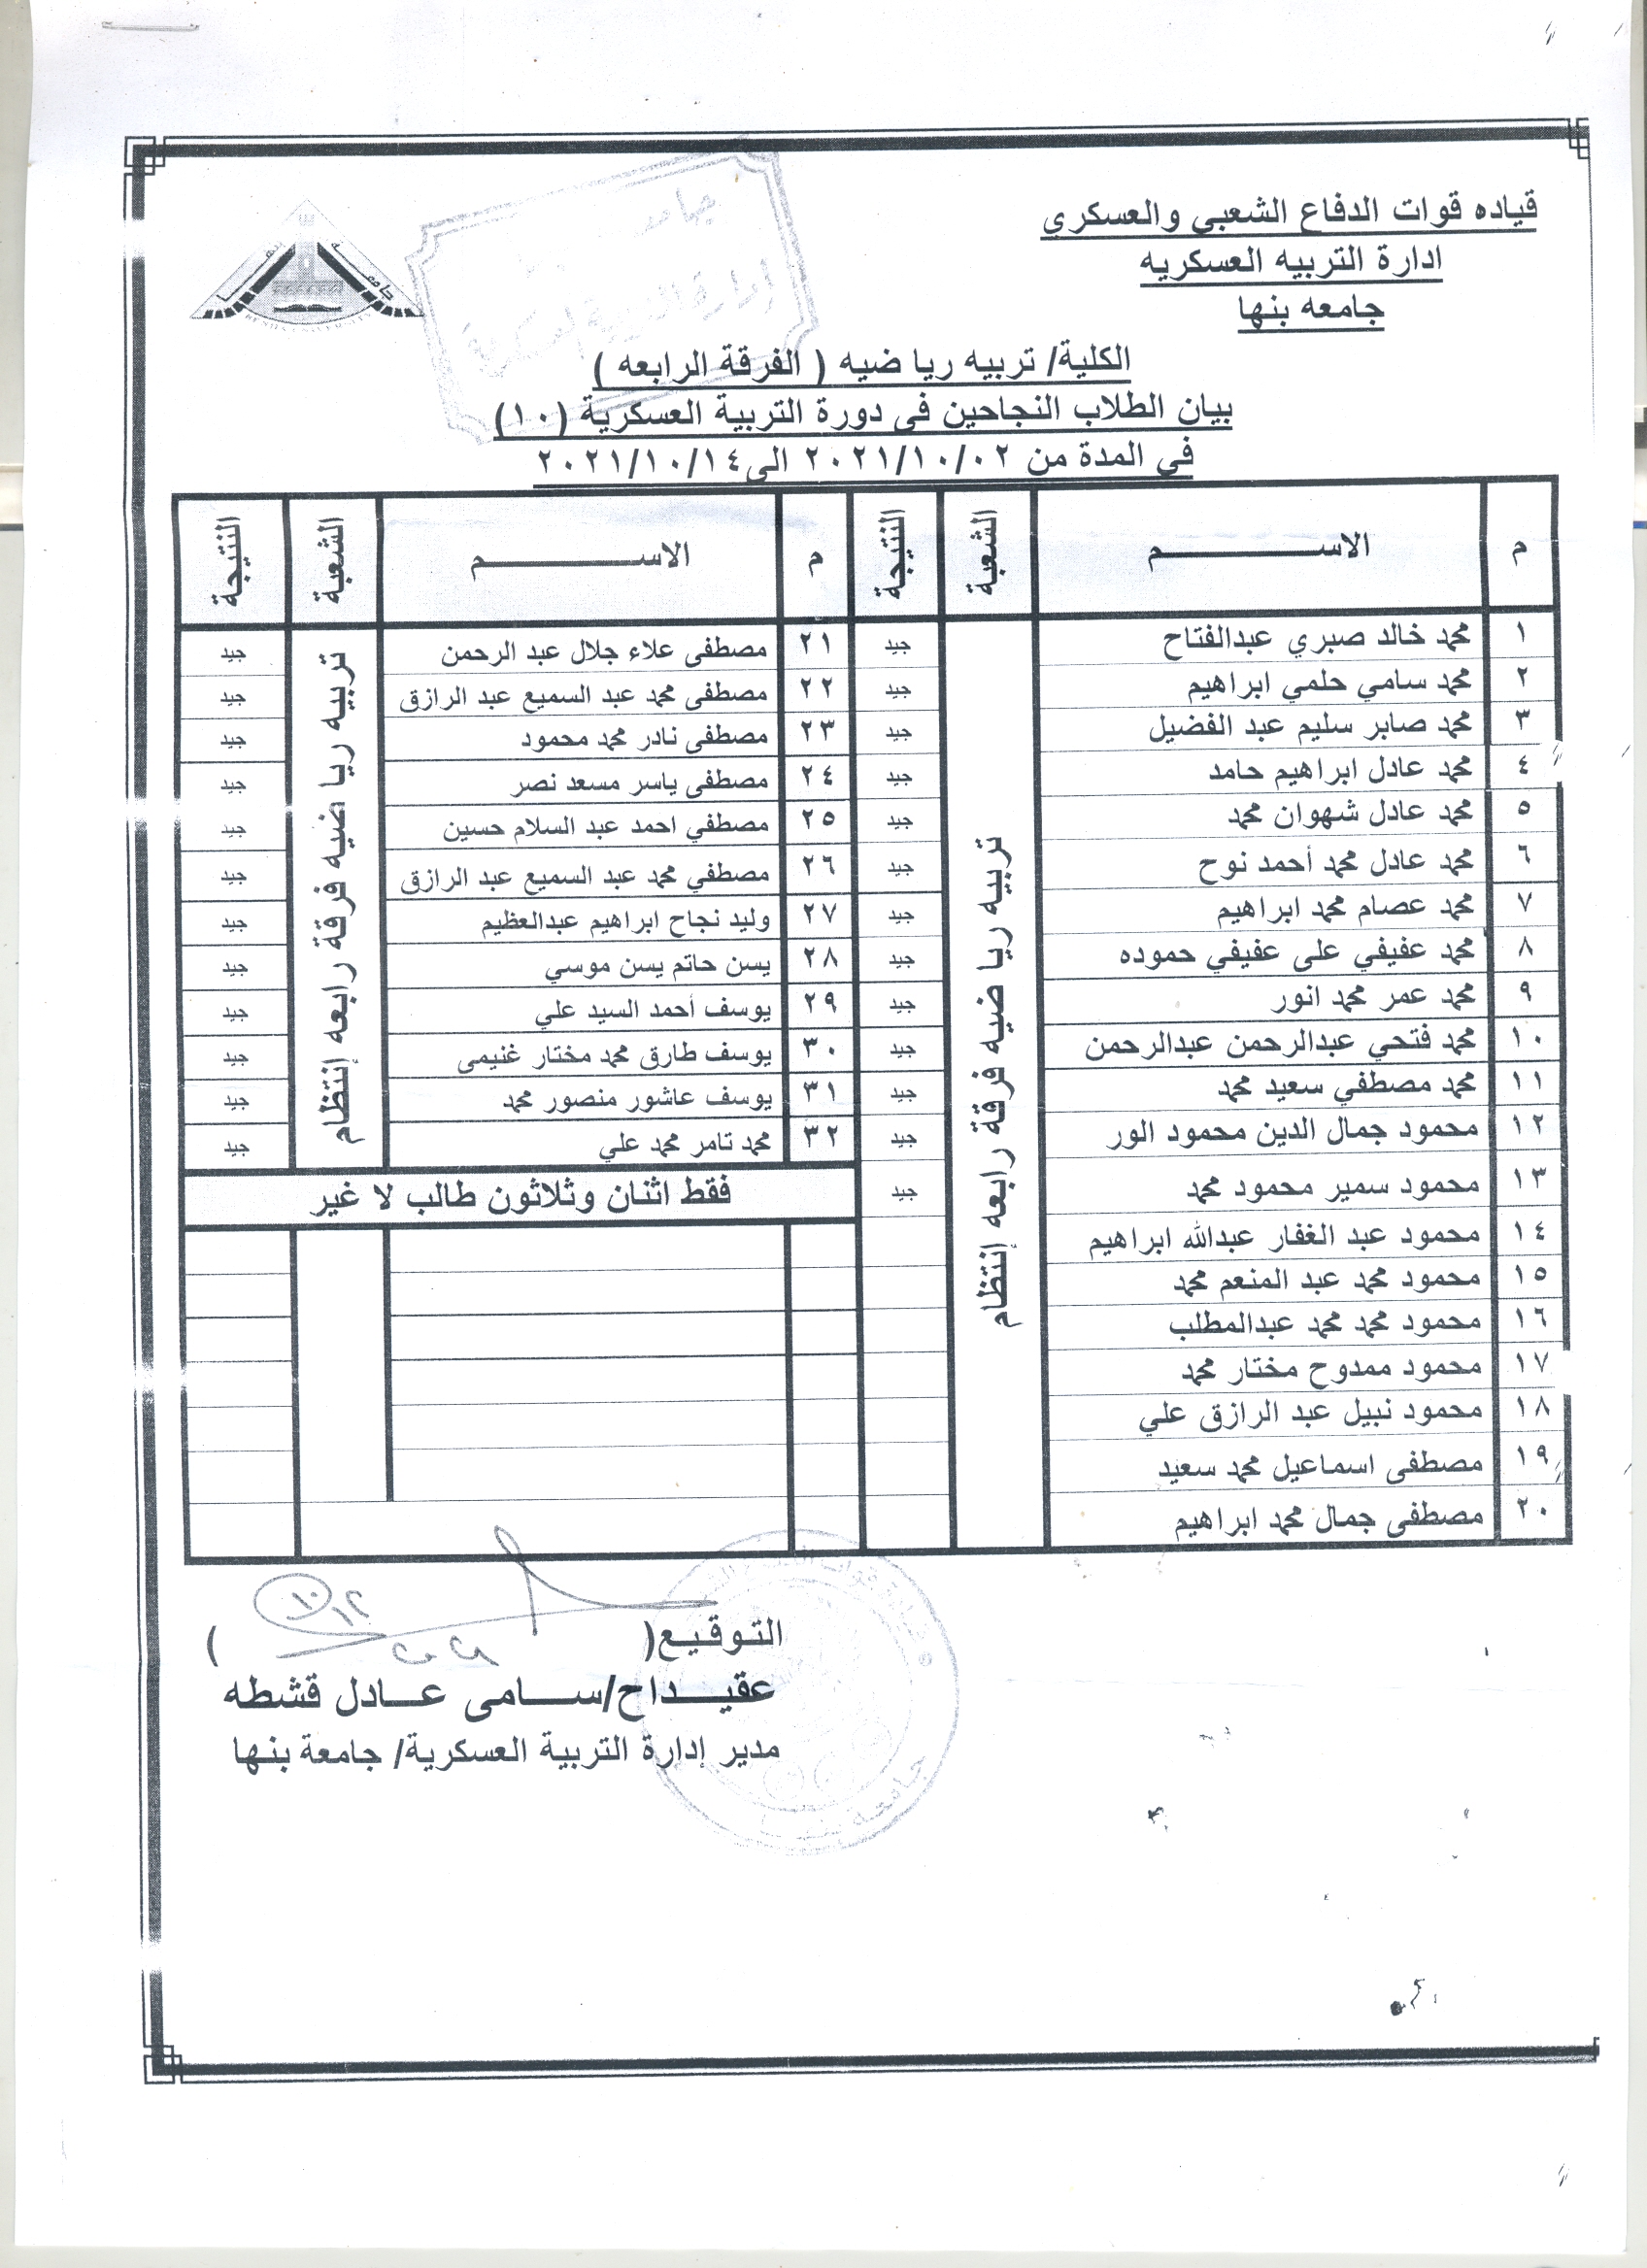 قياده قوات الدفاع الشعبي والعسكرى
ادارة التربيه العسكريه
جامعه بنها
جامعة
BENHA UNIVERSITY
جامعة
إدارة التربية العسكرية
الكلية/ تربيه رياضيه ( الفرقة الرابعه )
بيان الطلاب النجاحين فى دورة التربية العسكرية (١٠)
في المدة من ٢٠٢١/١٠/٠٢ الى٢٠٢١/١٠/١٤
م الاســــــــم الشعبة النتيجة
١ محمد خالد صبري عبدالفتاح جيد
٢ محمد سامي حلمي ابراهيم جيد
٣ محمد صابر سليم عبد الفضيل جيد
٤ محمد عادل ابراهيم حامد جيد
٥ محمد عادل شهوان محمد جيد
٦ محمد عادل محمد أحمد نوح جيد
٧ محمد عصام محمد ابراهيم جيد
٨ محمد عفيفي على عفيفي حموده جيد
٩ محمد عمر محمد انور جيد
١٠ محمد فتحي عبدالرحمن عبدالرحمن جيد
١١ محمد مصطفي سعيد محمد جيد
١٢ محمود جمال الدين محمود الور جيد
١٣ محمود سمير محمود محمد جيد
١٤ محمود عبد الغفار عبدالله ابراهيم
١٥ محمود محمد عبد المنعم محمد
١٦ محمود محمد محمد عبدالمطلب
١٧ محمود ممدوح مختار محمد
١٨ محمود نبيل عبد الرازق علي
١٩ مصطفى اسماعيل محمد سعيد
٢٠ مصطفى جمال محمد ابراهيم
تربيه رياضيه فرقة رابعه إنتظام
م الاســــــــم الشعبة النتيجة
٢١ مصطفى علاء جلال عبد الرحمن جيد
٢٢ مصطفى محمد عبد السميع عبد الرازق جيد
٢٣ مصطفى نادر محمد محمود جيد
٢٤ مصطفى ياسر مسعد نصر جيد
٢٥ مصطفي احمد عبد السلام حسين جيد
٢٦ مصطفي محمد عبد السميع عبد الرازق جيد
٢٧ وليد نجاح ابراهيم عبدالعظيم جيد
٢٨ يسن حاتم يسن موسي جيد
٢٩ يوسف أحمد السيد علي جيد
٣٠ يوسف طارق محمد مختار غنيمى جيد
٣١ يوسف عاشور منصور محمد جيد
٣٢ محمد تامر محمد علي جيد
تربيه رياضيه فرقة رابعه إنتظام
فقط اثنان وثلاثون طالب لا غير
التوقيع( )
عقيـــداح/ســـامى عـــادل قشطه
مدير إدارة التربية العسكرية/ جامعة بنها
جامعة بنها